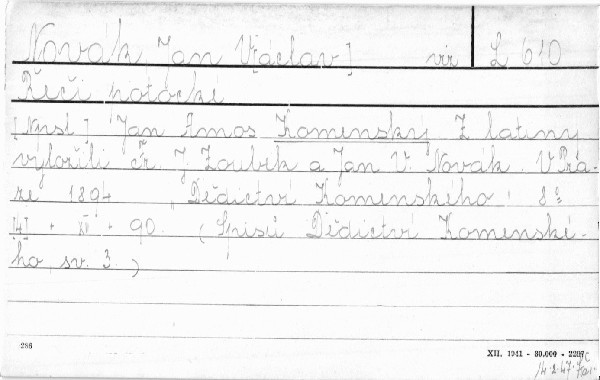 Novák Jan V[áclav] viz L 610
Řeči potocké
[Napsl.] Jan Amos Komenský Z latiny
vyložili Fr. J. Zoubek a Jan V. Novák. V Pra-
ze 1894 „Dědictví Komenského" 8°
+ XV + 90. (Spisů Dědictví Komenské-
ho, sv. 3.)
286
XII. 1941 - 30.000 - 2297
14.2.47